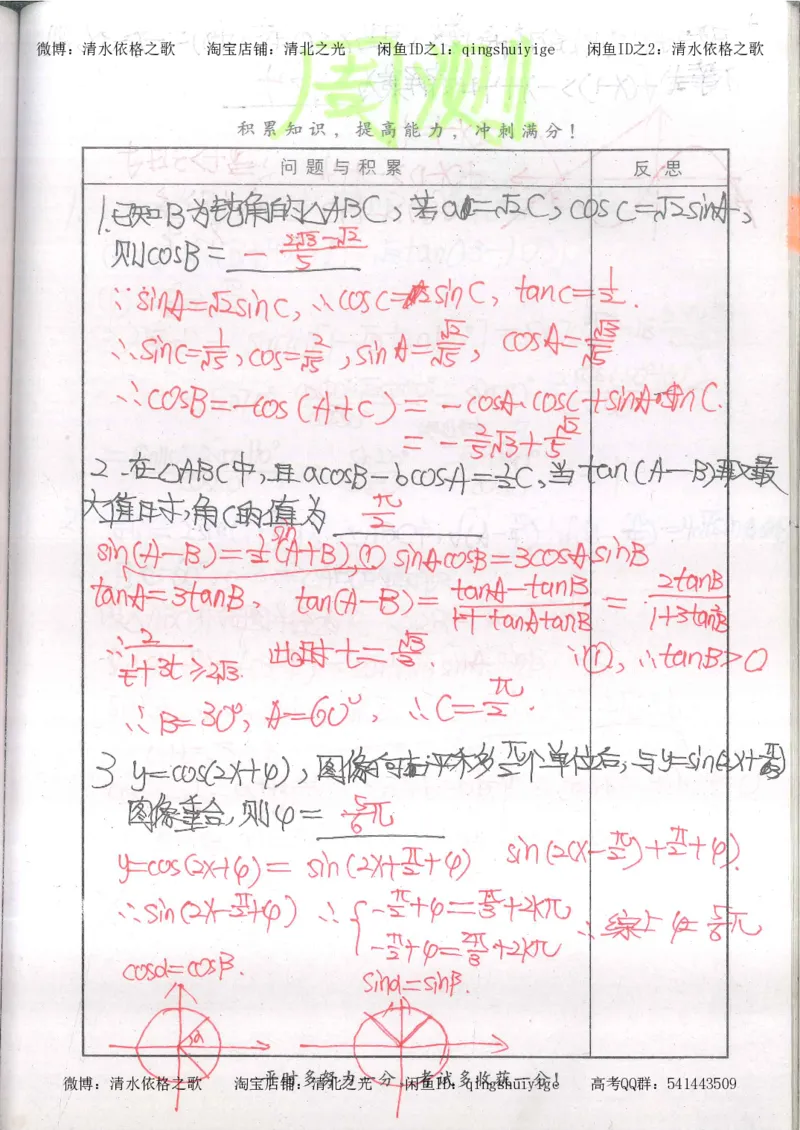 微博：清水依格之歌 淘宝店铺：清北之光 闲鱼ID之1：qingshuiyige 闲鱼ID之2：清水依格之歌
周测
积累知识，提高能力，冲刺满分！
问题与积累 反思
1.已知B为钝角的△ABC，若a=√2c，cosC=√2sinA，
则cosB= -(2√3-√2)/5
∵sinA=√2sinC，∴cosC=2sinC，tanC=1/2.
∴sinC=1/√5，cos=2/√5，sinA=√2/√5，cosA=√3/√5
∴cosB=-cos(A+C)=-cosA·cosC+sinA·sinC.
=-2/5√3+√2/5
2.在△ABC中，且acosB-bcosA=1/2c，当tan(A-B)取最
大值时，角C的值为 π/2
sin(A-B)=1/2sin(A+B)，① sinAcosB=3cosAsinB
tanA=3tanB，tan(A-B)=(tanA-tanB)/(1+tanAtanB)=2tanB/(1+3tan²B)
∴2/(1/t+3t)≥2√3. 此时t=√3/3. ∵①，∴tanB>0
∴B=30°，A=60°，∴C=π/2.
3 y=cos(2x+φ)，图像向右平移π/2个单位后，与y=sin(2x+π/3)
图像重合，则φ= 5/6π
y=cos(2x+φ)=sin(2x+π/2+φ) sin(2(x-π/2)+π/2+φ).
∴sin(2x-π/2+φ) ∴{-π/2+φ=π/3+2kπ ∴综上φ=5/6π
-π/2+φ=2π/3+2kπ
cosα=cosβ. sinα=sinβ.
α
平时多努力一分，考试多收获一分！
微博：清水依格之歌 淘宝店铺：清北之光 闲鱼ID：qingshuiyige 高考QQ群：541443509